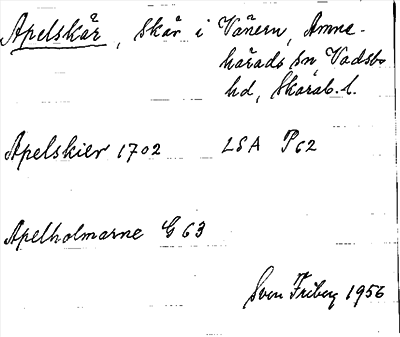 Apelskär, Skär i Vänern, Amne-
härads sn Vadsbo
hd, Skarab. l.
Apelskier 1702 LSA P62
Apelholmarne G 63
Sven Friberg 1956